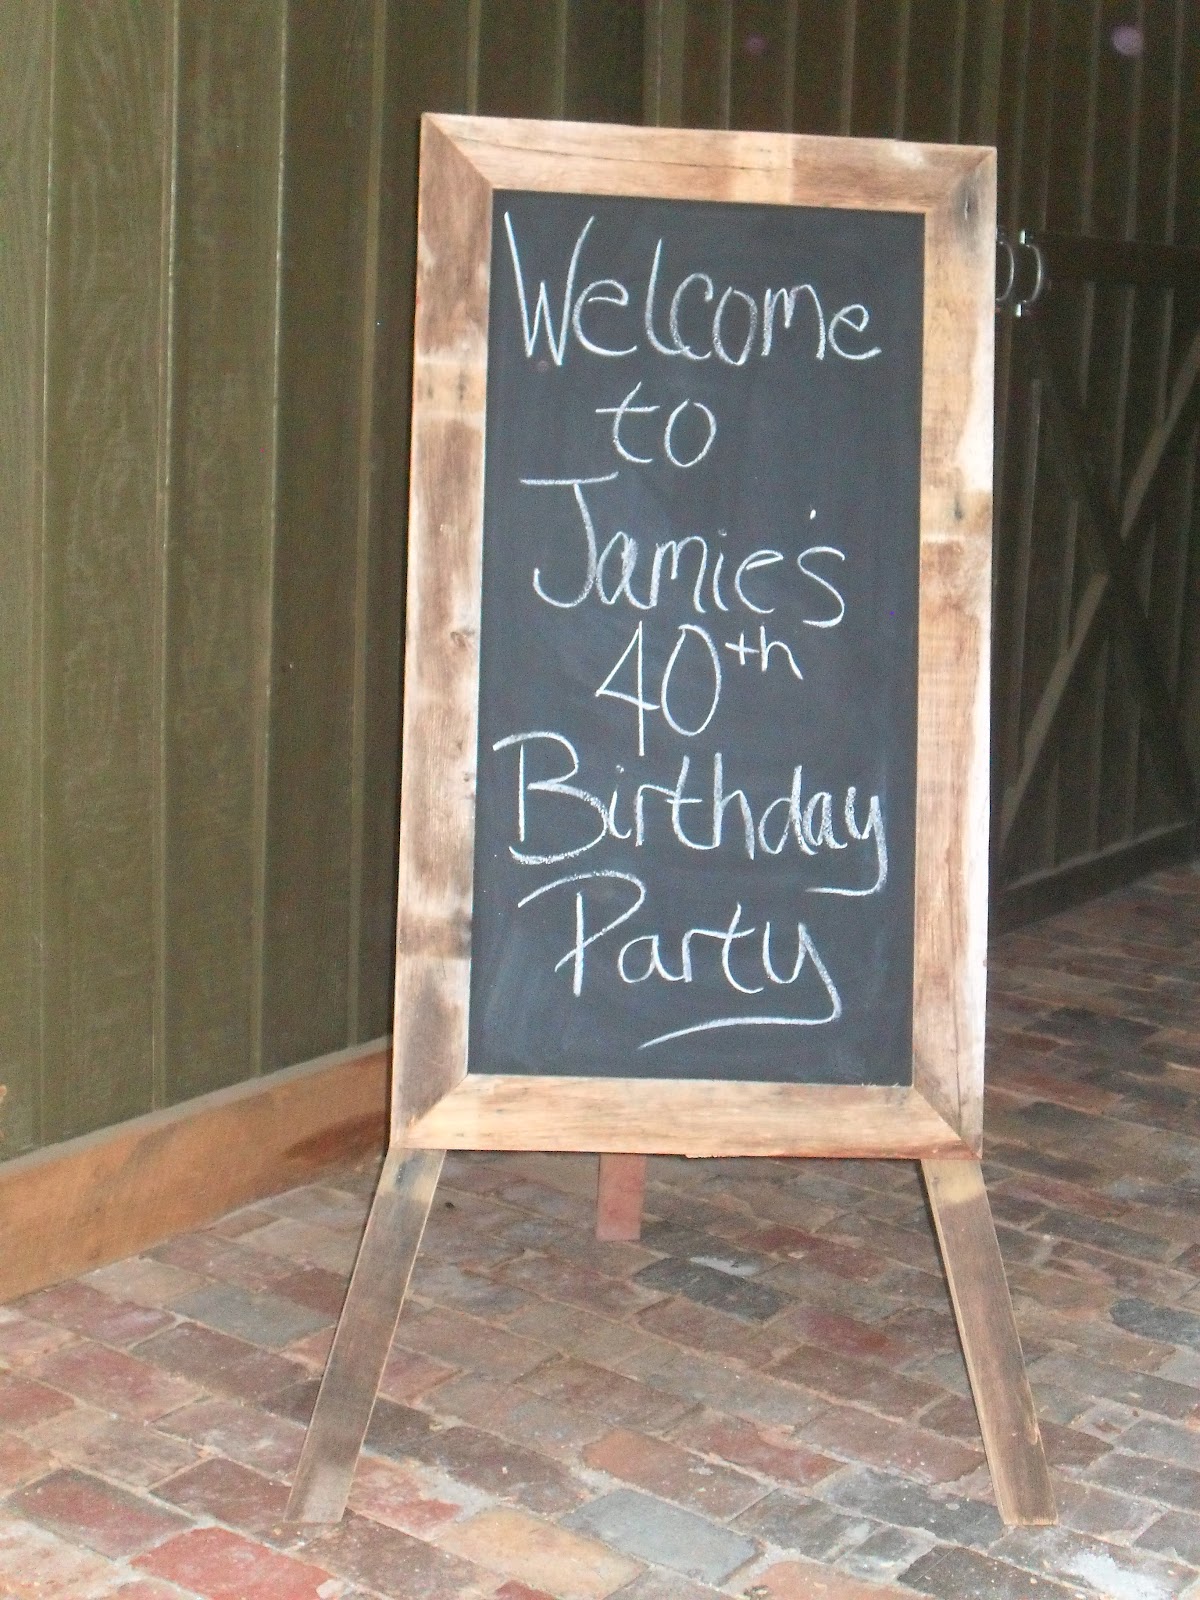 Welcome
to
Jamie's
40th
Birthday
Party